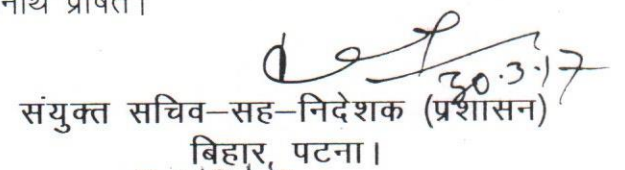 प्रेषित।
30.3.17
संयुक्त सचिव–सह–निदेशक (प्रशासन)
बिहार, पटना।